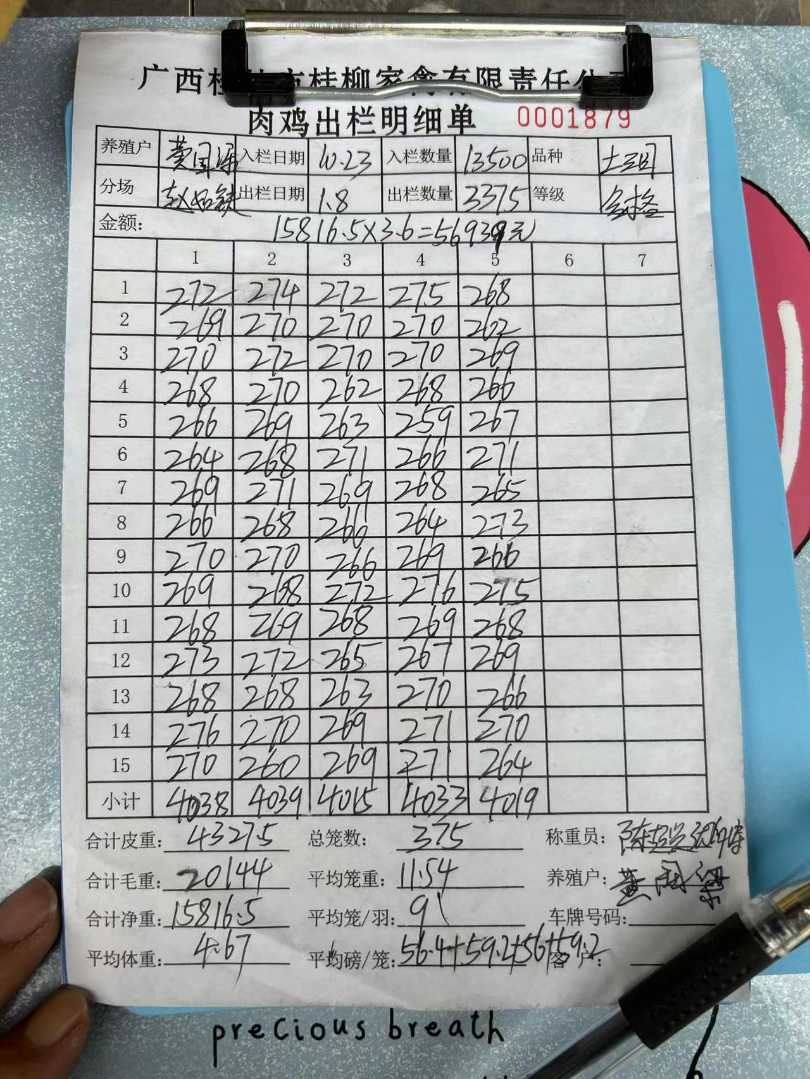 广西桂林市桂柳家禽有限责任公司
肉鸡出栏明细单 0001879
养殖户 黄国 入栏日期 10.23 入栏数量 13500 品种 土
分场 出栏日期 1.8 出栏数量 3375 等级
金额: 15816.5×3.6=56939元
1 2 3 4 5 6 7
1 272 274 272 275 268
2 269 270 270 270 262
3 270 272 270 270 269
4 268 270 262 268 266
5 266 269 263 259 267
6 264 268 271 266 271
7 269 271 269 268 265
8 266 268 266 264 273
9 270 270 266 269 266
10 269 268 272 276 275
11 268 269 268 269 268
12 273 272 265 267 269
13 268 268 263 270 266
14 276 270 269 271 270
15 270 260 269 271 264
小计 4038 4039 4015 4033 4019
合计皮重: 4327.5 总笼数: 375 称重员:
合计毛重: 20144 平均笼重: 11.54 养殖户: 黄国
合计净重: 15816.5 平均笼/羽: 9 车牌号码:
平均体重: 4.67 平均磅/笼: 56.4+59.2+56+59.2
precious breath